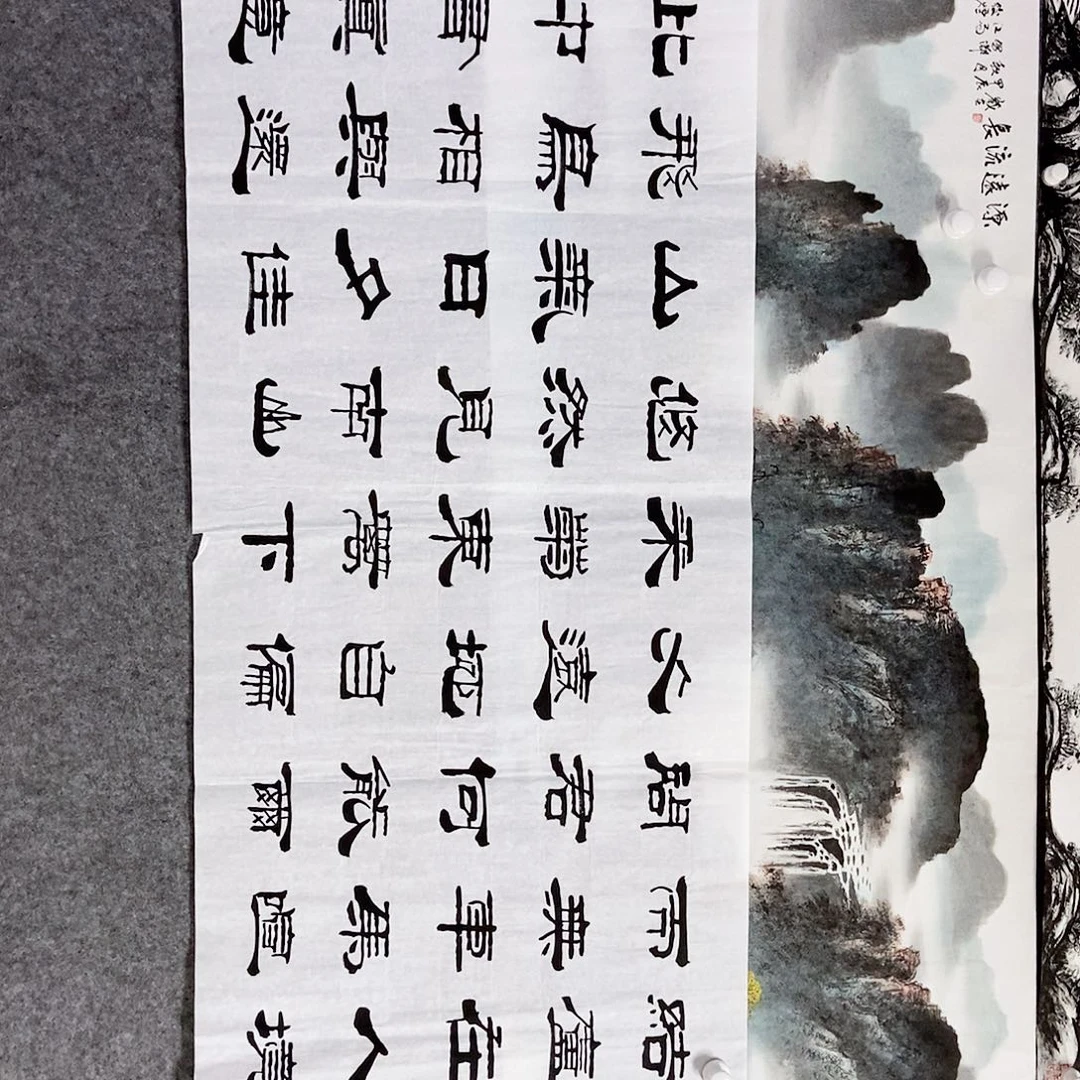 結廬在人境
而無車馬喧
問君何能爾
心遠地自偏
采菊東籬下
悠然見南山
山氣日夕佳
飛鳥相與還
此中有真意
源遠流長